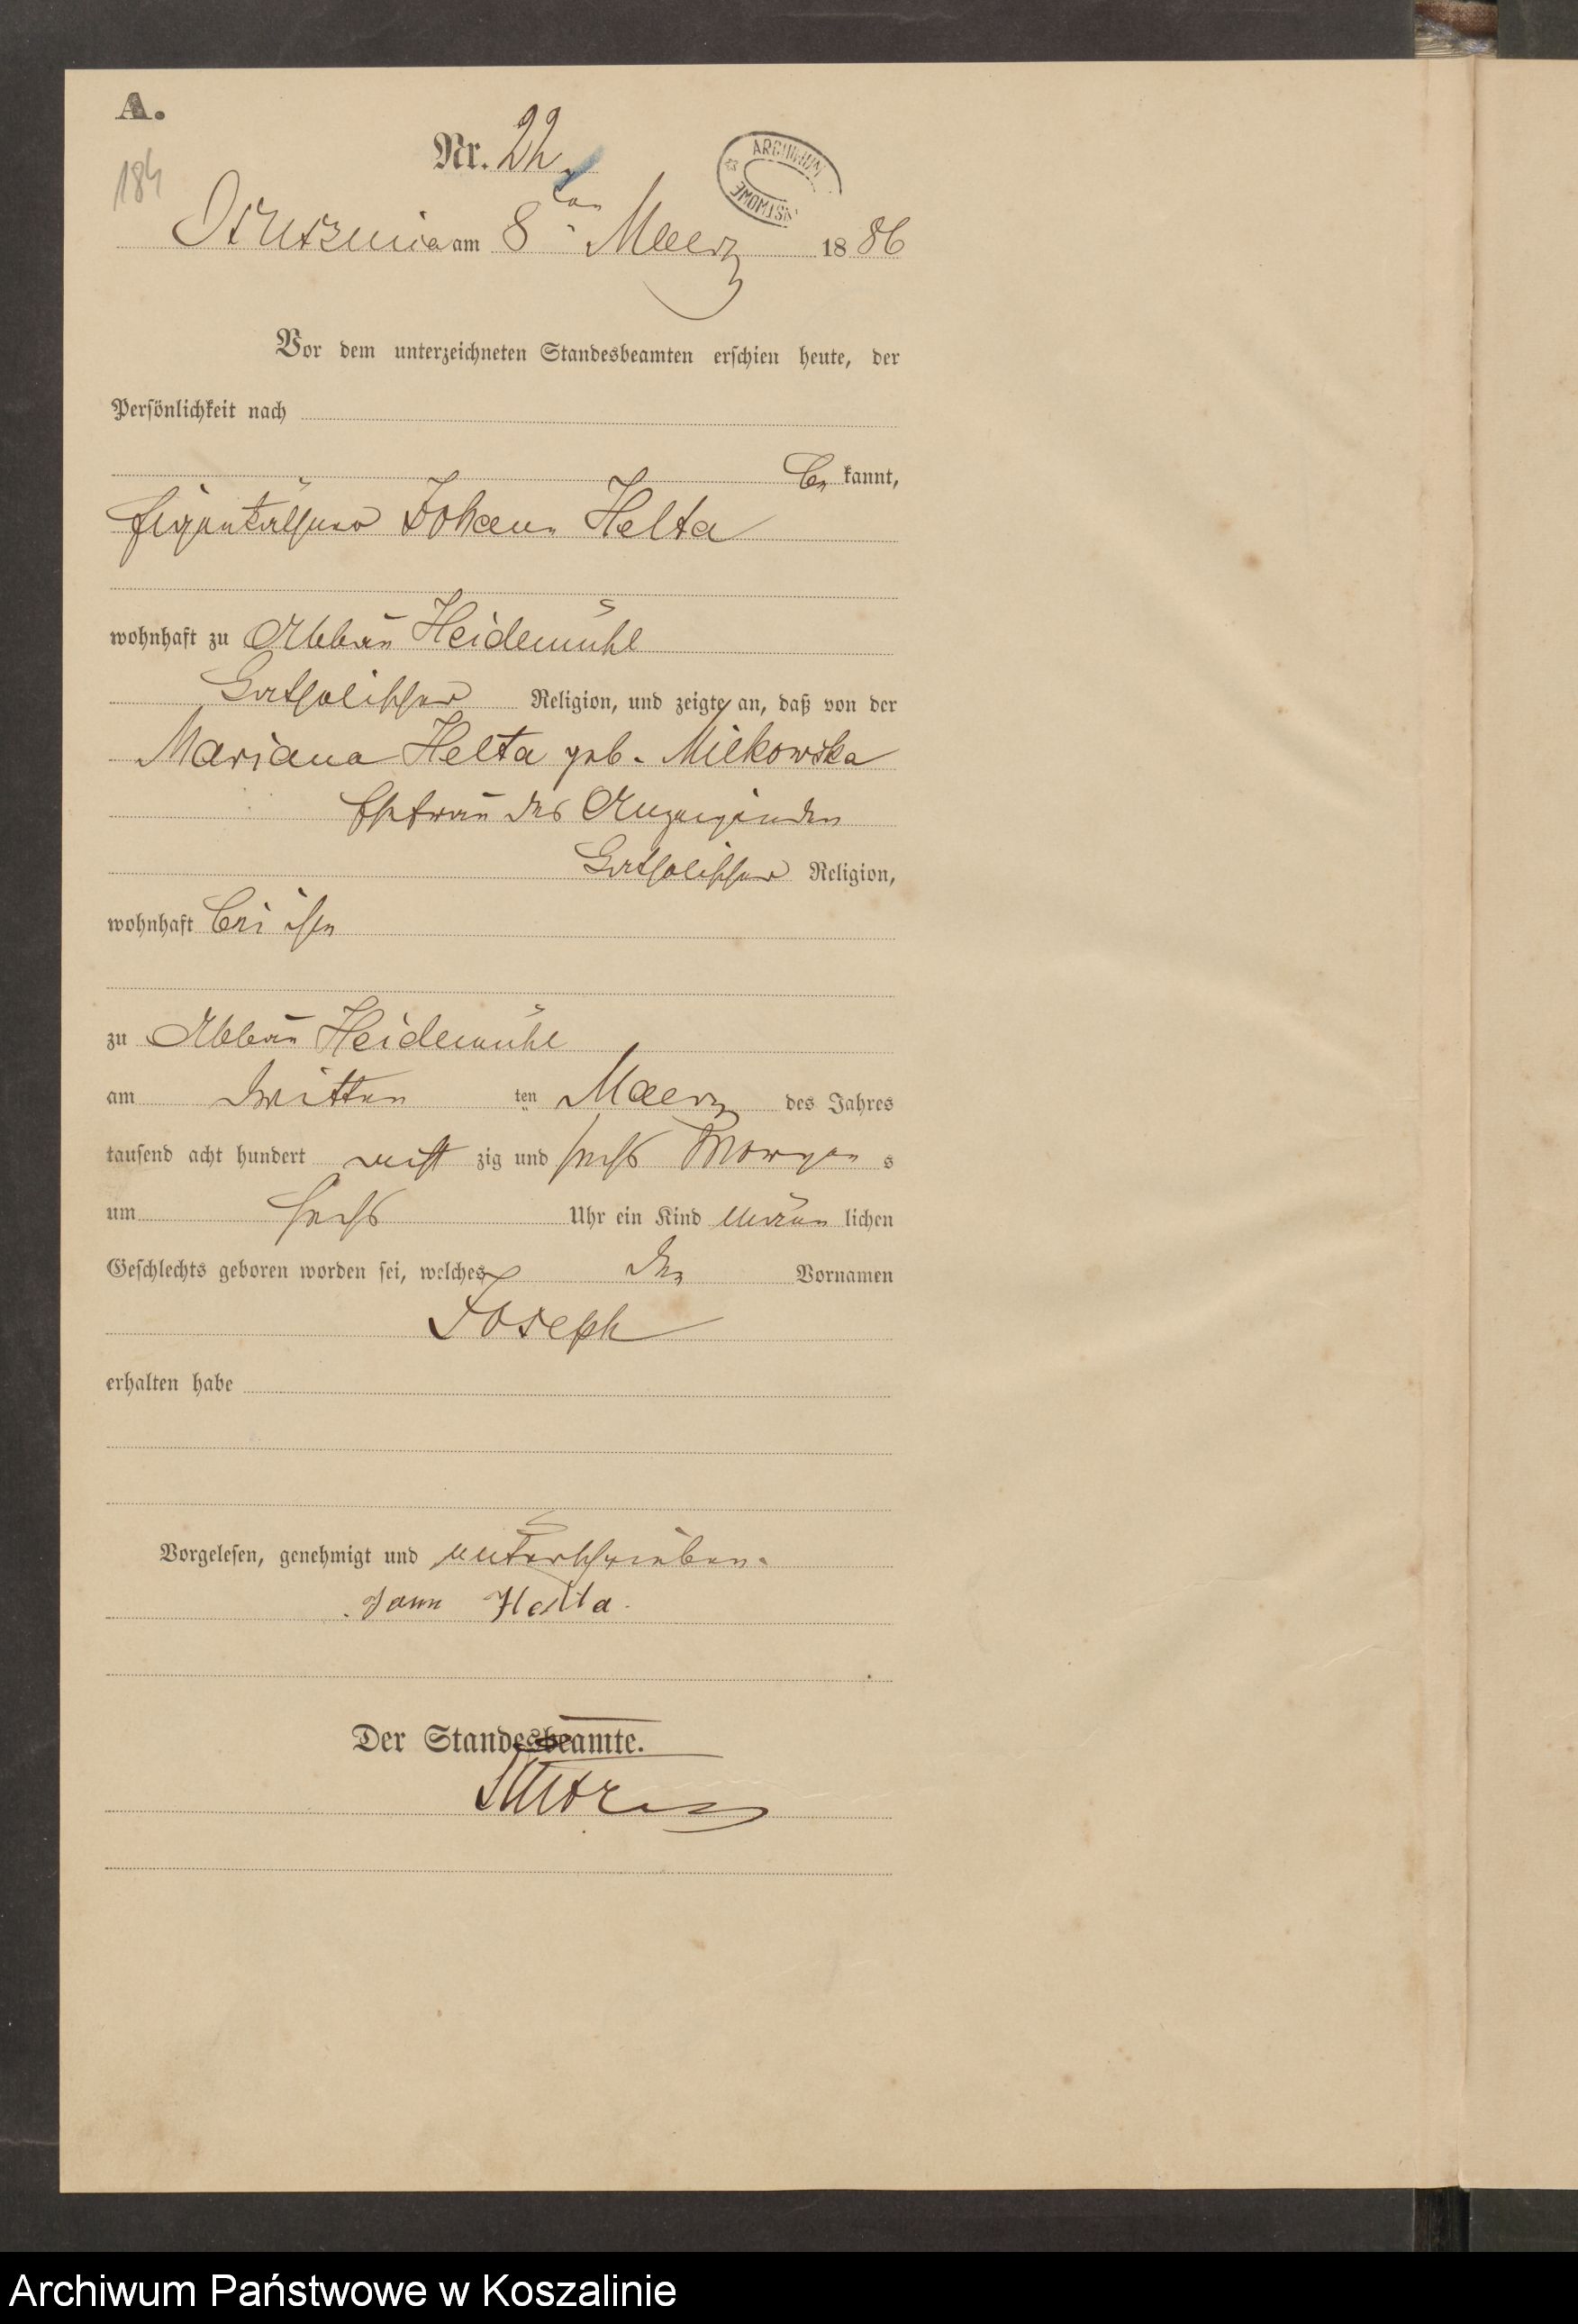 A.
184
Nr. 22
ARCHIWUM
am 8ten Maerz 1886
Vor dem unterzeichneten Standesbeamten erschien heute, der
Persönlichkeit nach
be kannt,
Eigenthümer Johann Helta
wohnhaft zu Abbau Heidemühl
katholischer Religion, und zeigte an, daß von der
Mariana Helta geb. Milkowska
Ehefrau des Anzeigenden
katholischer Religion,
wohnhaft bei ihm
zu Abbau Heidemühl
am dritten ten Maerz des Jahres
tausend acht hundert acht zig und sechs Morgen s
um sechs Uhr ein Kind männ lichen
Geschlechts geboren worden sei, welches den Vornamen
Joseph
erhalten habe
Vorgelesen, genehmigt und unterschrieben.
Jann Helta.
Der Standesbeamte.
Archiwum Państwowe w Koszalinie